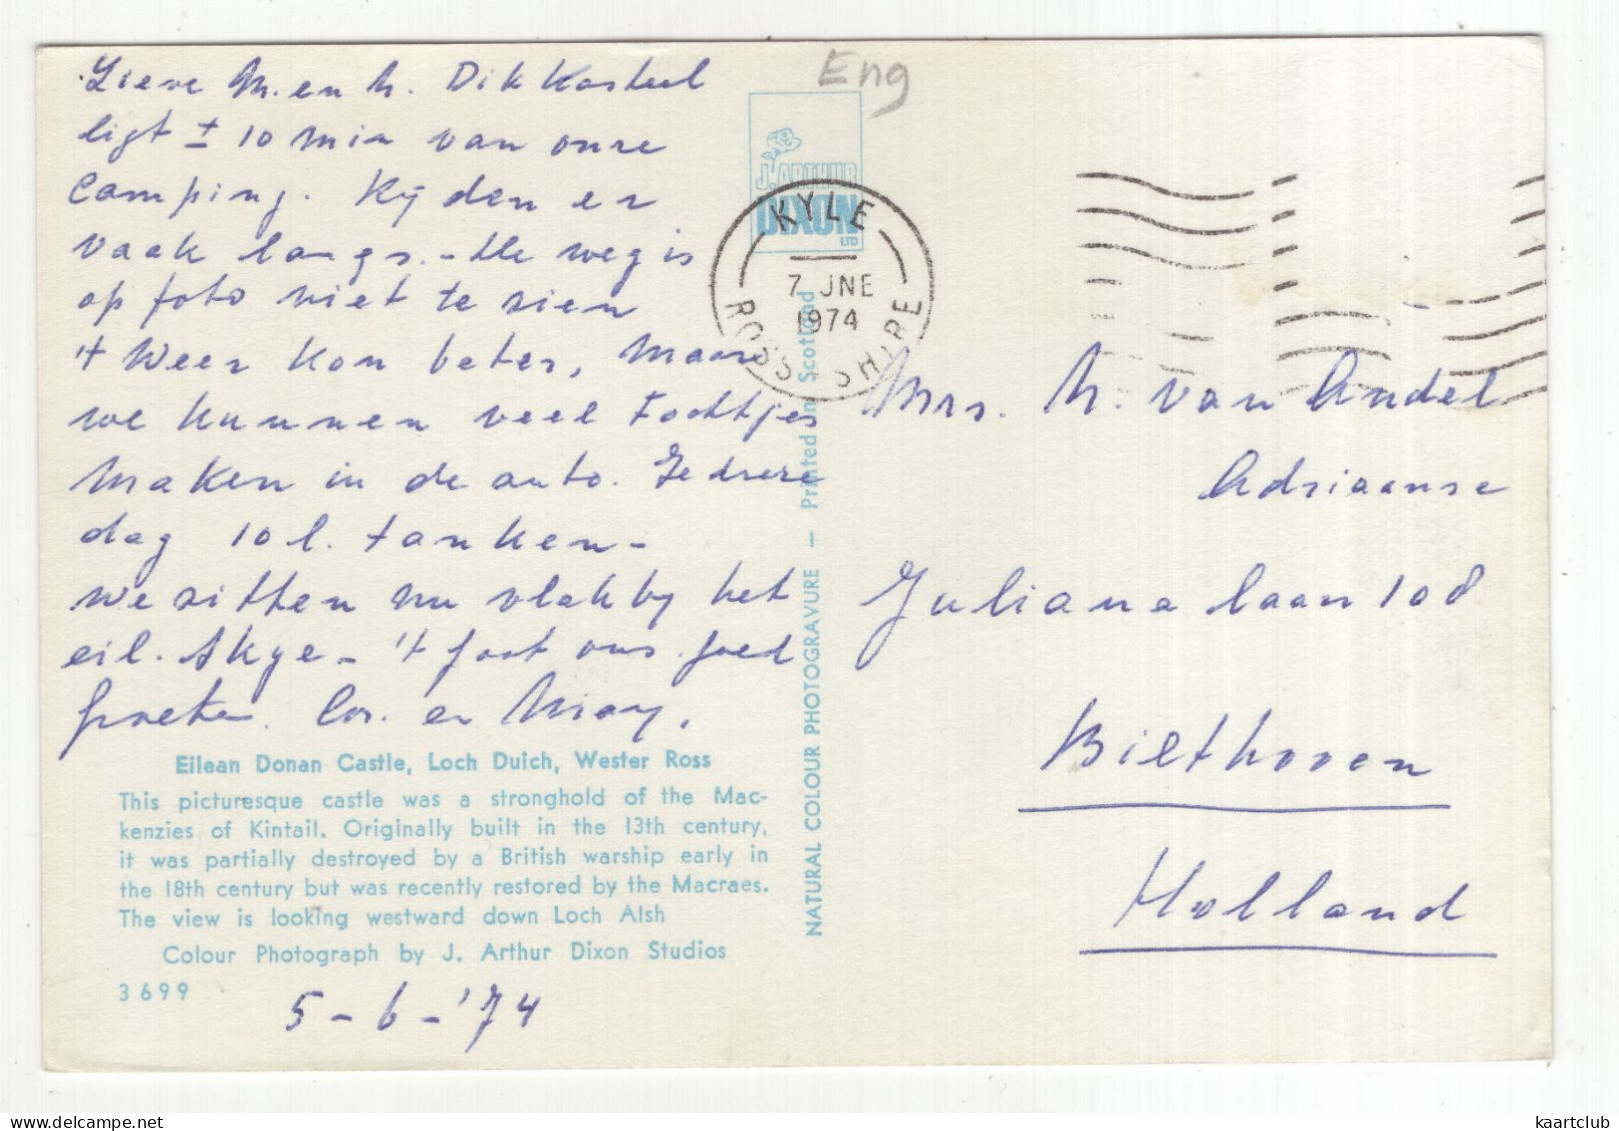 Lieve M. en M. Dik kasteel
ligt ± 10 min van onze
Camping. Rijden er
vaak langs. - De weg is
op foto niet te zien
't Weer kon beter, maar
we kunnen veel tochtjes
maken in de auto. Iedere
dag 10 l. tanken -
we zitten nu vlakbij het
eil. Skye - 't gaat ons goed
groeten. Cor. en May.
Eilean Donan Castle, Loch Duich, Wester Ross
This picturesque castle was a stronghold of the Mac-
kenzies of Kintail. Originally built in the 13th century,
it was partially destroyed by a British warship early in
the 18th century but was recently restored by the Macraes.
The view is looking westward down Loch Alsh
Colour Photograph by J. Arthur Dixon Studios
3699
5-6-'74
Eng
J. ARTHUR
DIXON
LTD
KYLE
7 JNE
1974
ROSS-SHIRE
NATURAL COLOUR PHOTOGRAVURE — Printed in Scotland
Mrs. M. van Andel
Adriaanse
Juliana laan 108
Bilthoven
Holland
kaartclub